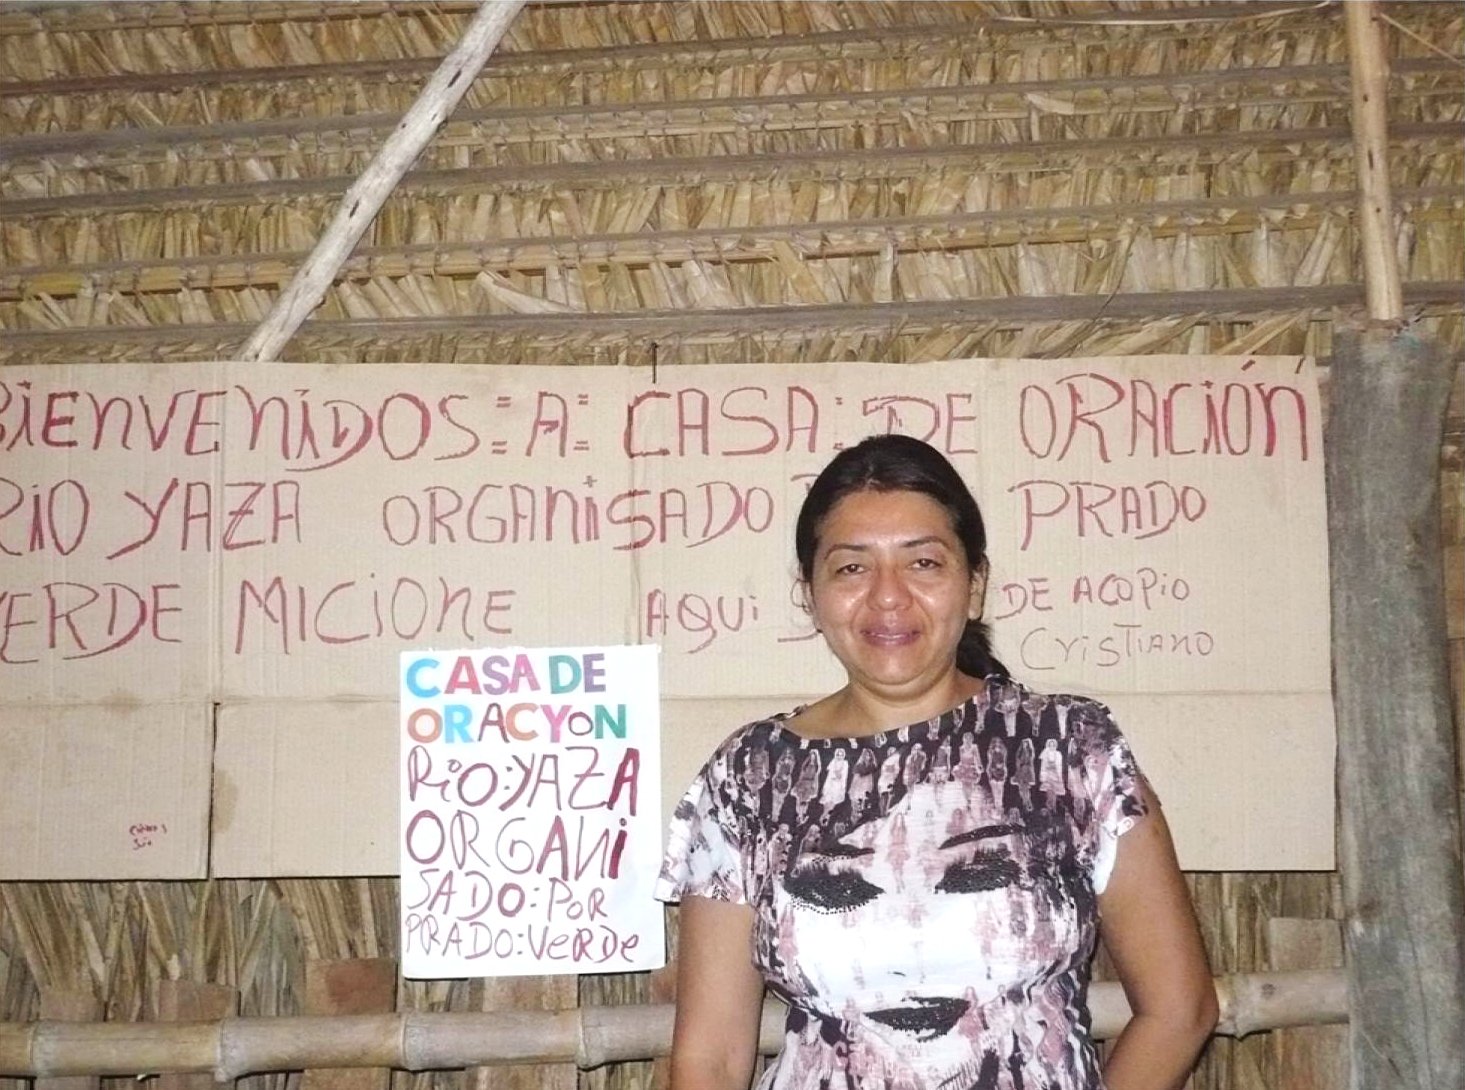 BIENVENIDOS = A = CASA : DE ORACIÓN
RIO YAZA ORGANISADO PRADO
VERDE MICIONE AQUI DE ACOPIO
CRISTIANO
CASA DE
ORACYON
RIO : YAZA
ORGANI
SADO : POR
PRADO : VERDE